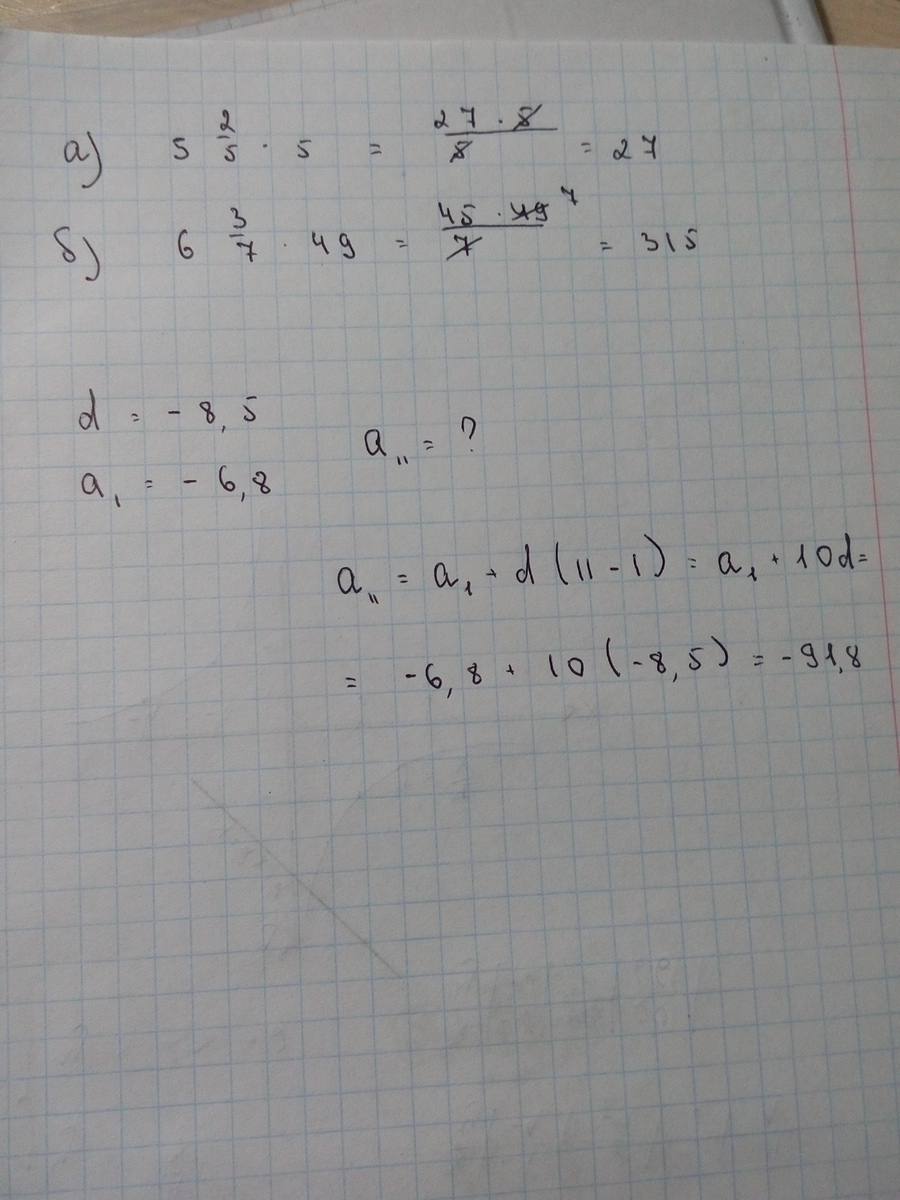 а) 5 2/5 · 5 = 27 · 5 / 5 = 27
б) 6 3/7 · 49 = 45 · 49 7 / 7 = 315
d = - 8,5
a₁₁ = ?
a₁ = - 6,8
a₁₁ = a₁ + d (11 - 1) = a₁ + 10d =
= -6,8 + 10 (-8,5) = -91,8